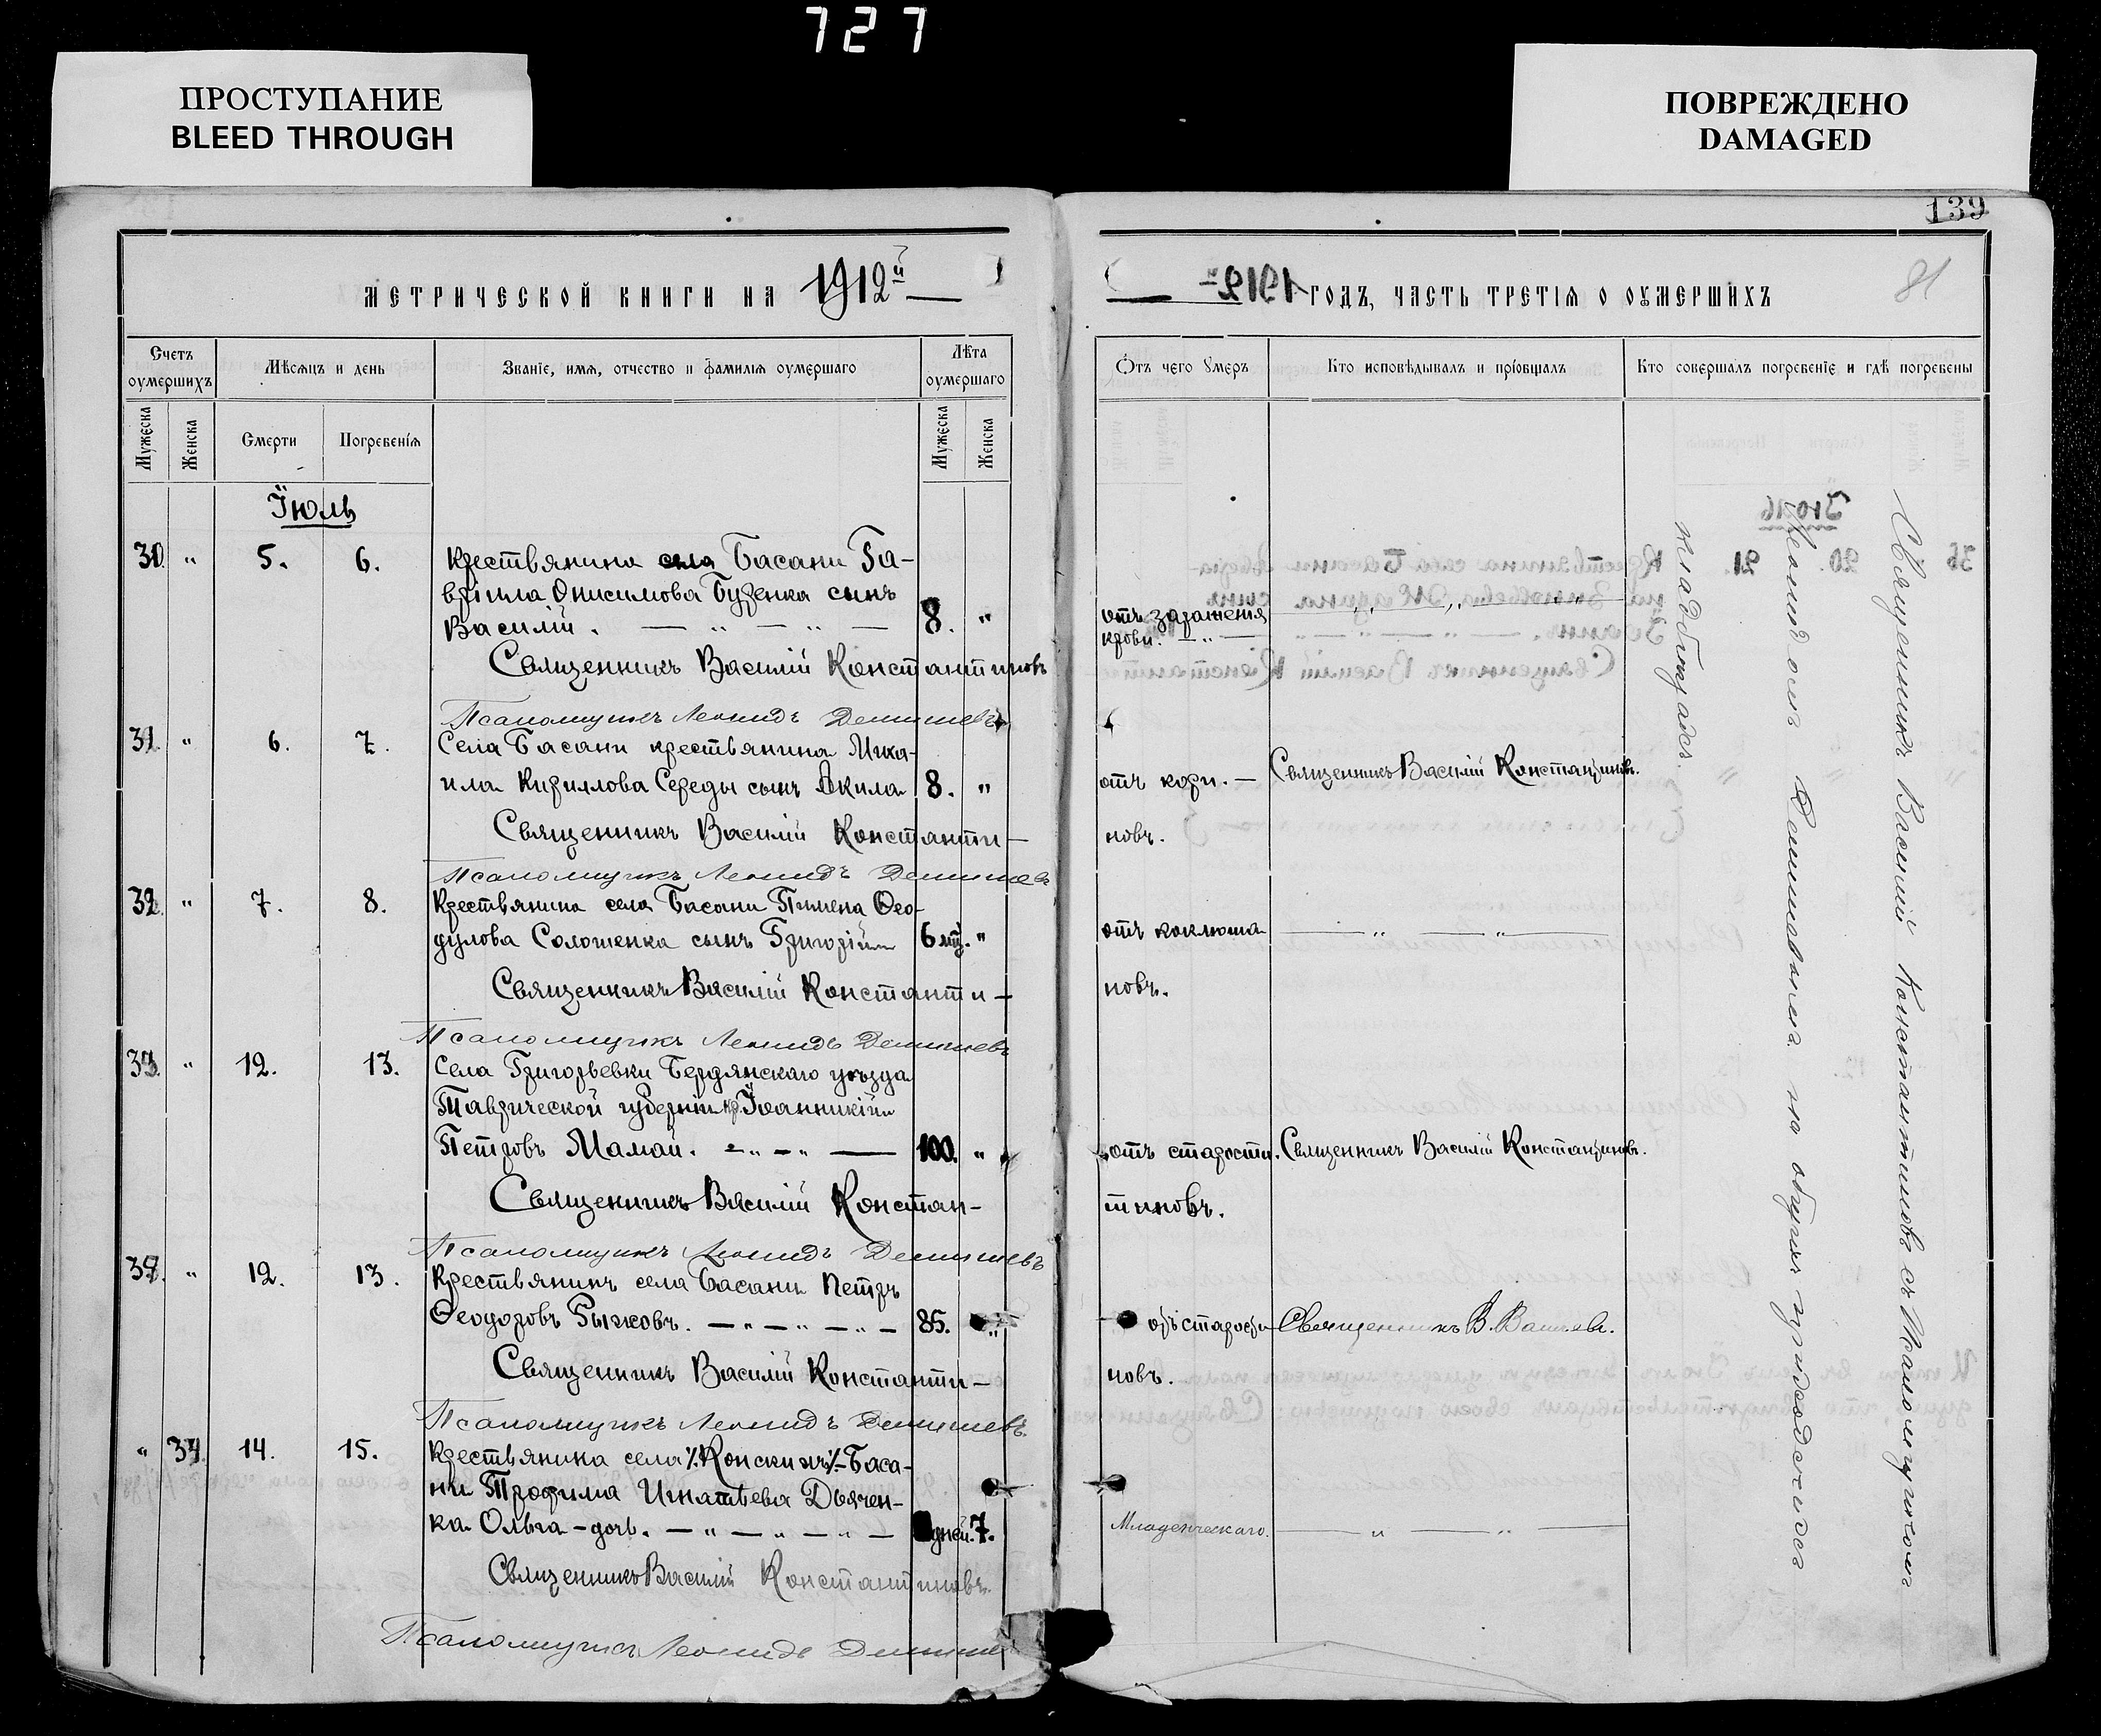 727
ПРОСТУПАНИЕ
BLEED THROUGH
ПОВРЕЖДЕНО
DAMAGED
139
МЕТРИЧЕСКОЙ КНИГИ НА 1912й
Счетъ оумершихъ
Мѣсяцъ и день
Званіе, имя, отчество и фамилія оумершаго
Лѣта оумершаго
Мужеска
Женска
Смерти
Погребенія
Мужеска
Женска
Іюль
30. " 5. 6. Крестьянина села Басани Га-
вріила Онисимова Бузенка сынъ
Василій. — " — " — 8. "
Священникъ Василій Константиновъ
Псаломщикъ Леонидъ
31. " 6. 7. Села Басани крестьянина Миха-
ила Кириллова Середы сынъ Акила 8. "
Священникъ Василій Константи-
Псаломщикъ Леонидъ
32. " 7. 8. Крестьянина села Басани Пимена Ѳео-
дулова Солошенка сынъ Григорій 6 мц. "
Священникъ Василій Константи-
Псаломщикъ Леонидъ
33. " 12. 13. Села Григорьевки Бердянскаго уѣзда
Таврической губерніи кр. Іоанникій
Петровъ Мамай. — " — " — 100. "
Священникъ Василій Констан-
Псаломщикъ Леонидъ
" 12. 13. Крестьянинъ села Басани Петръ
Ѳеодоровъ Рыжковъ. — " — " — " — 85. "
Священникъ Василій Константи-
Псаломщикъ Леонидъ
" 14. 15. Крестьянина села Конскихъ Баса-
ни Трофима Игнатьева Дьячен-
ка Ольга - дочь. — " — " — " — дней. 7.
Священникъ Василій Константиновъ.
Псаломщикъ Леонидъ
ГОДЪ, ЧАСТЬ ТРЕТІЯ О ОУМЕРШИХЪ
Отъ чего умеръ
Кто исповѣдывалъ и пріобщалъ
Кто совершалъ погребеніе и гдѣ погребены
отъ зараженія
крови. — " —
отъ кори. — Священникъ Василій Константиновъ.
новъ.
отъ коклюша — " — " —
новъ.
отъ старости. Священникъ Василій Константиновъ.
тиновъ.
отъ старости Священникъ В.
новъ.
Младенческаго. — " — " —
Священникъ Василій Константиновъ съ Псаломщикомъ
Леонидомъ на общемъ приходскомъ
кладбищѣ.